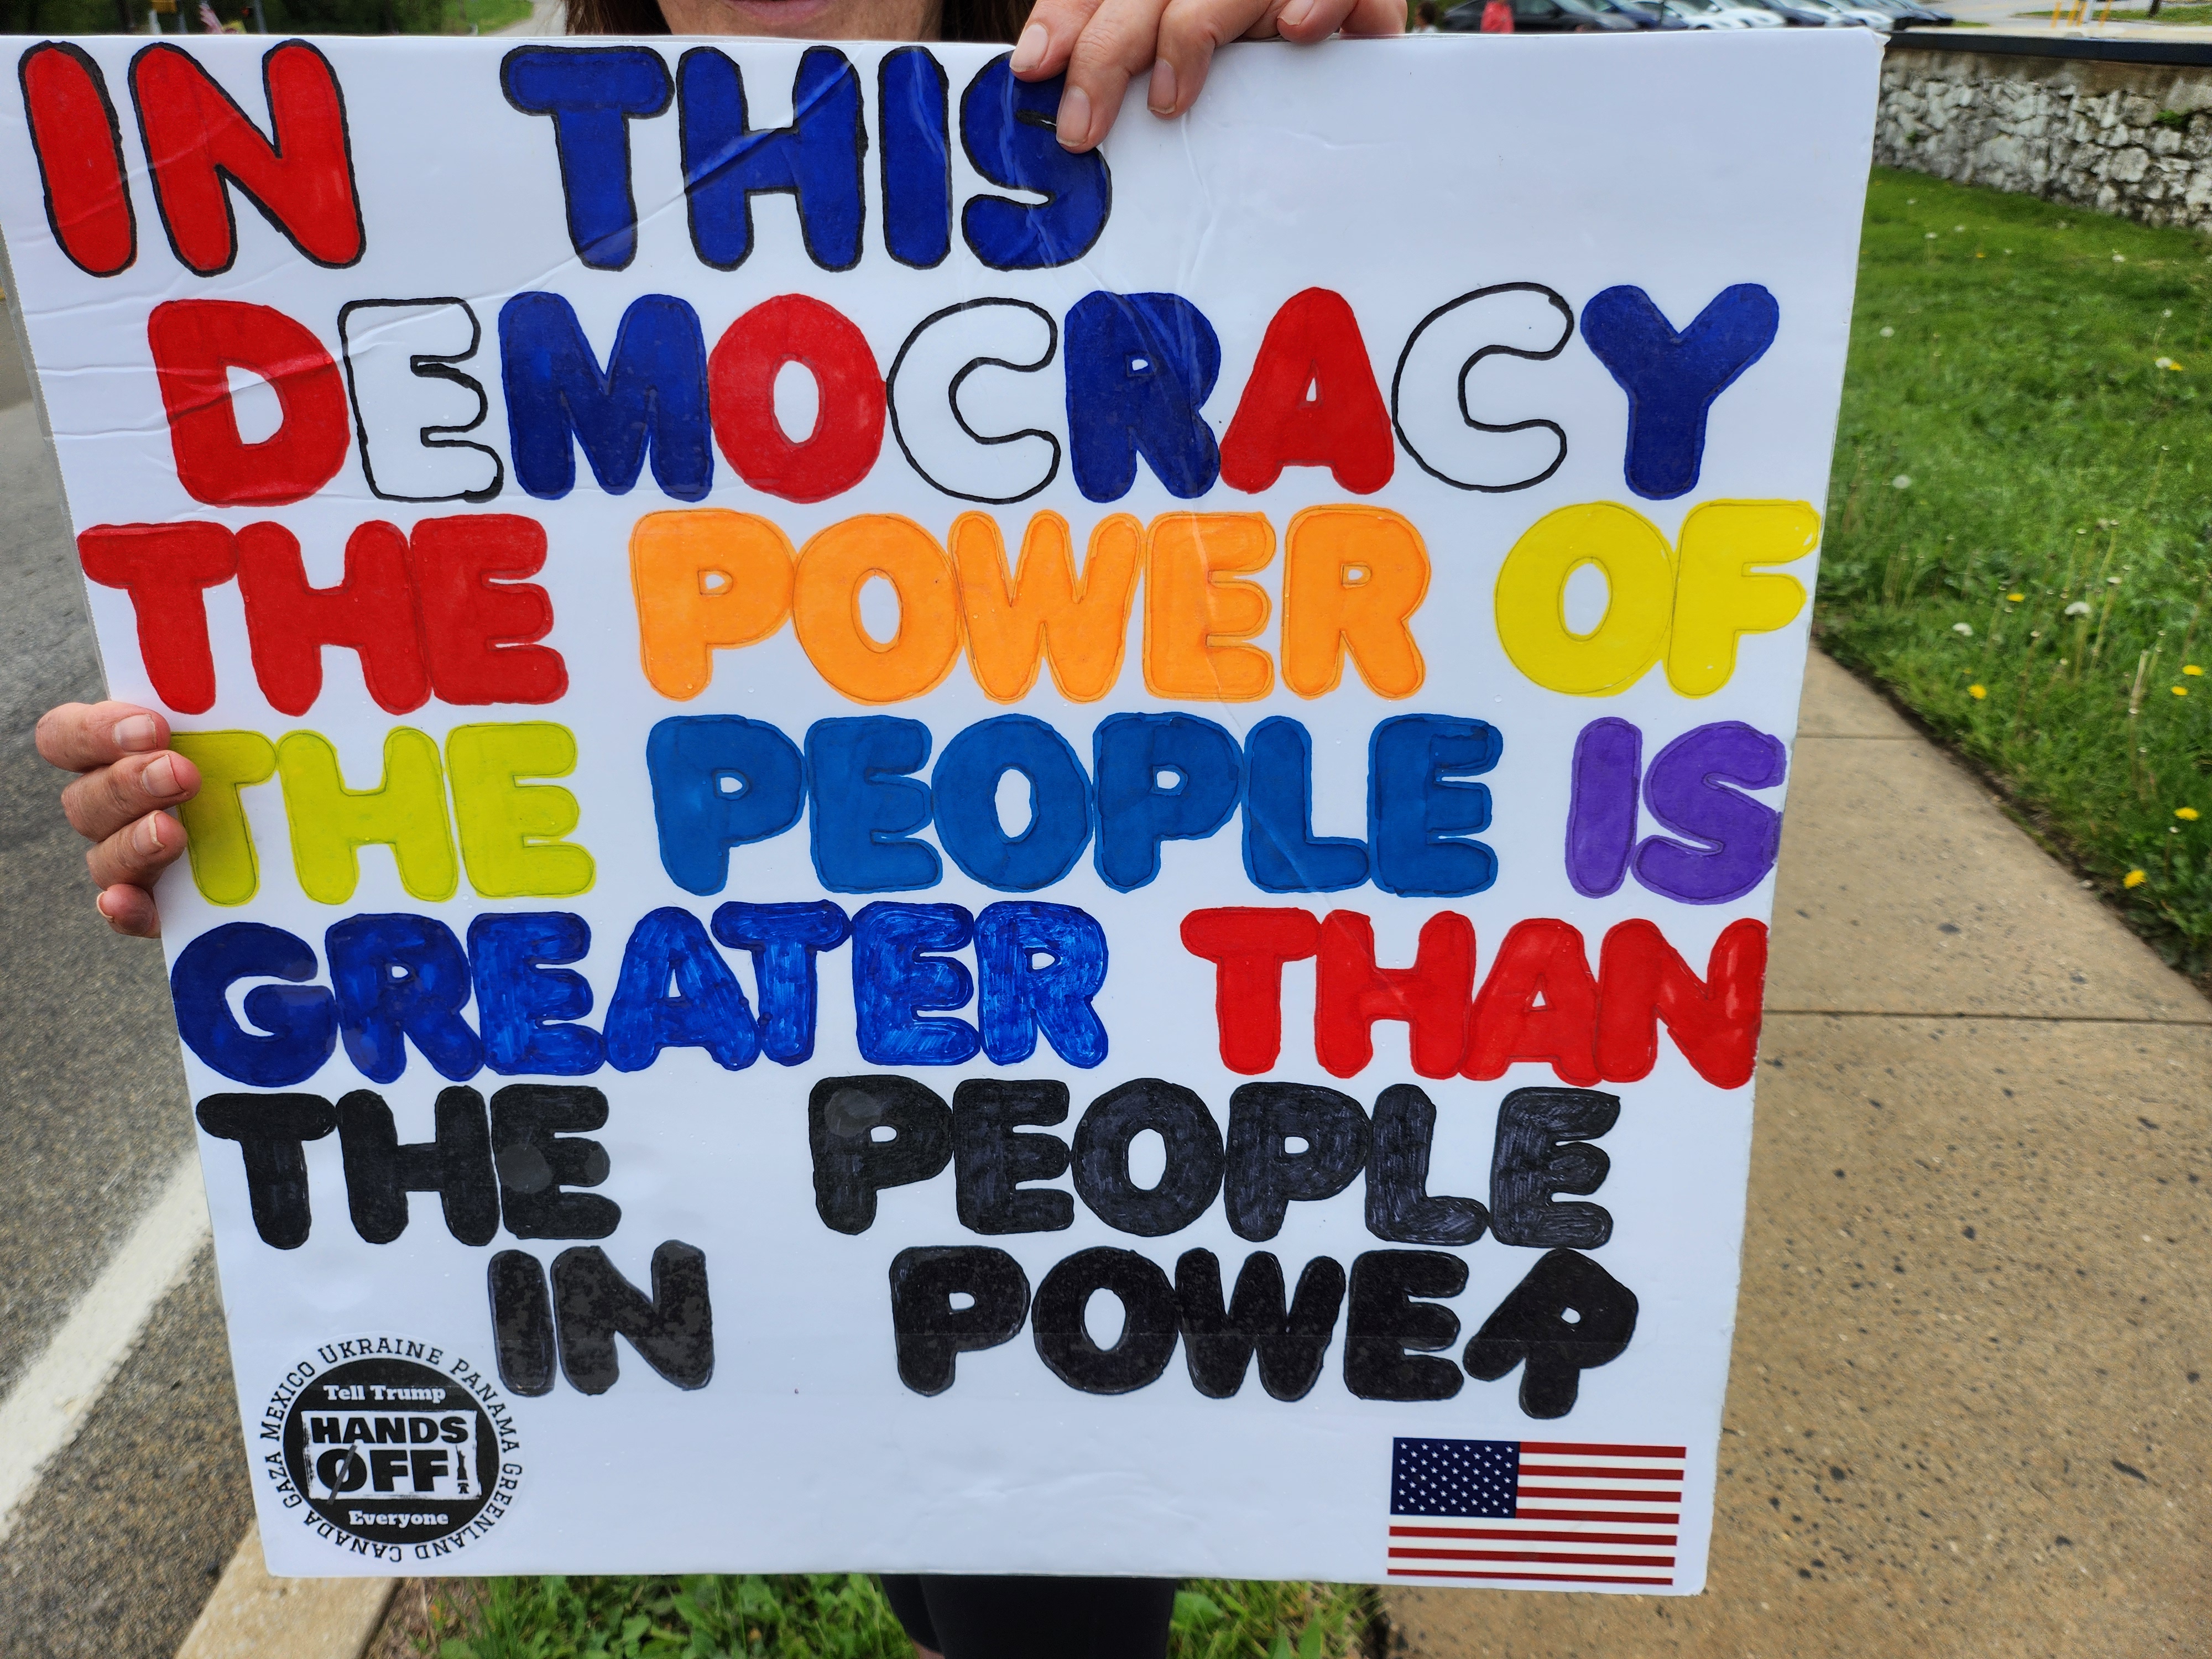 IN THIS
DEMOCRACY
THE POWER OF
THE PEOPLE IS
GREATER THAN
THE PEOPLE
IN POWER
GAZA MEXICO UKRAINE PANAMA GREENLAND CANADA
Tell Trump
HANDS
OFF!
Everyone